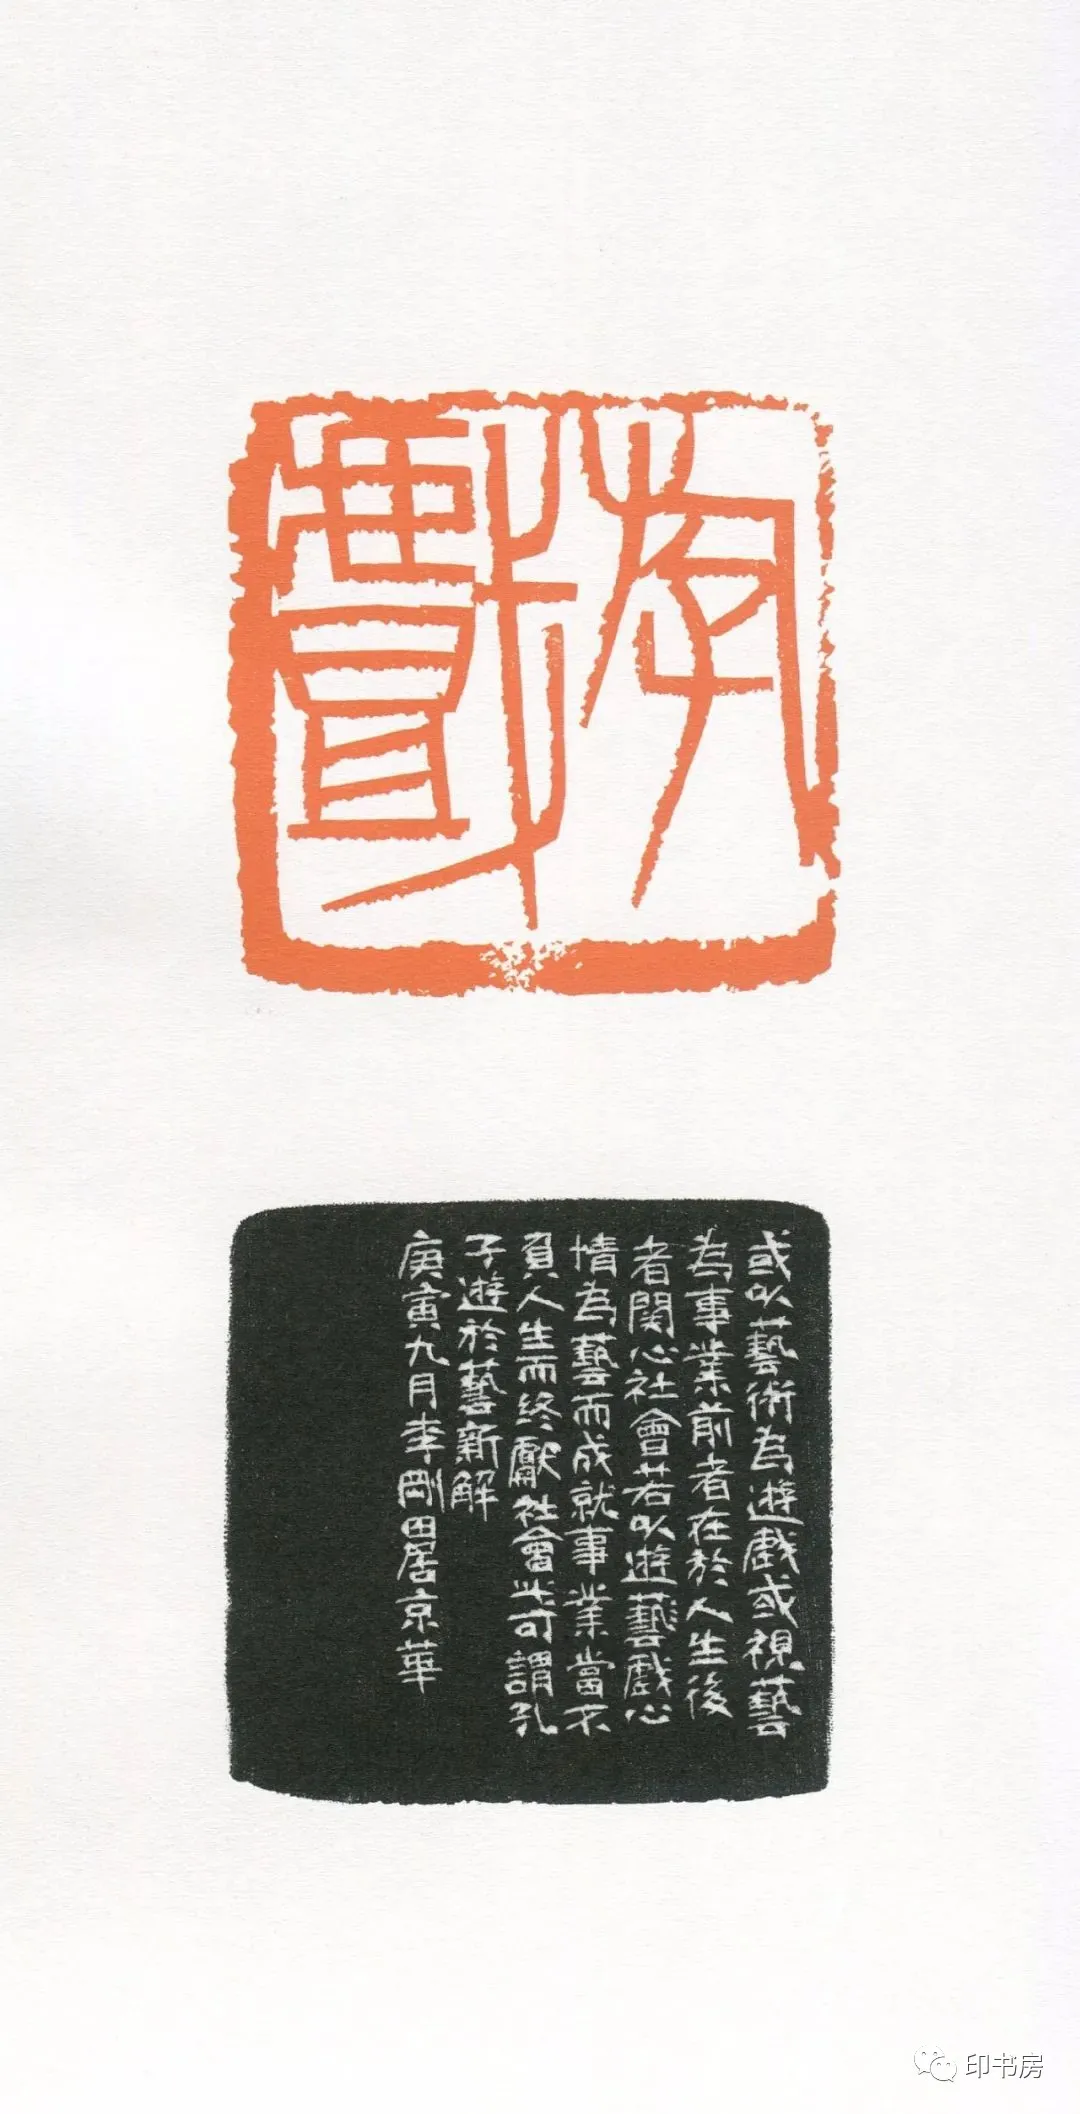 遊戲
或以藝術為遊戲或視藝
為事業前者在於人生後
者関心社會若以遊藝戲心
情為藝而成就事業當不
負人生而終獻社會此可謂孔
子遊於藝新解
庚寅九月李剛田居京華
印书房